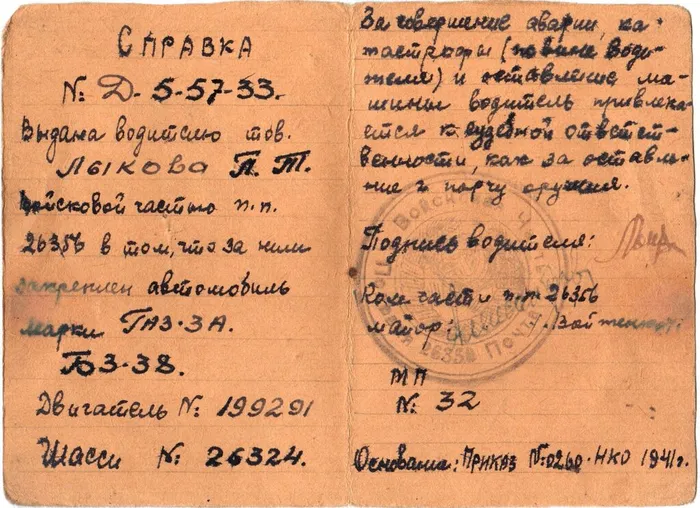 СПРАВКА
№ Д-5-57-33.
Выдана водителю тов.
Лыкова П. Т.
войсковой частью п.п.
26356 в том, что за ним
закреплен автомобиль
марки ГАЗ-3А.
БЗ-38.
Двигатель № 199291
Шасси № 26324.
За совершение аварии, ка-
тастрофы (по вине води-
теля) и оставление ма-
шины водитель привлека-
ется к судебной ответст-
венности, как за оставле-
ние и порчу оружия.
Подпись водителя:
Ком. части п.п. 26356
майор:
МП
№ 32
Основание: Приказ № 0260 - НКО 1941г.